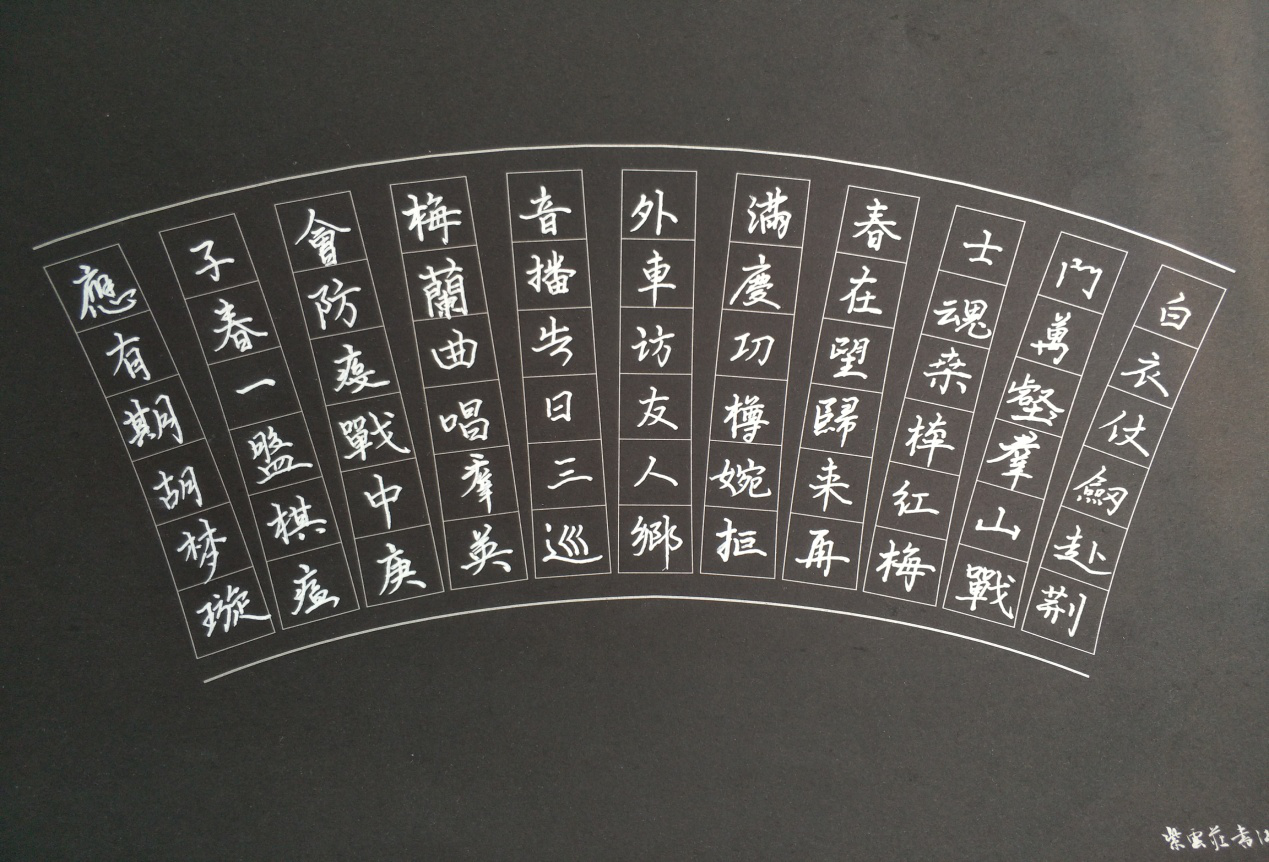 白衣仗劔赴荆
門萬壑羣山戰
士魂桒梓红梅
春在望歸来再
滿慶功樽婉拒
外車访友人鄉
音播告日三巡
梅蘭曲唱羣英
會防疫戰中庚
子春一盤棋瘟
應有期胡梦璇
紫雲莊書